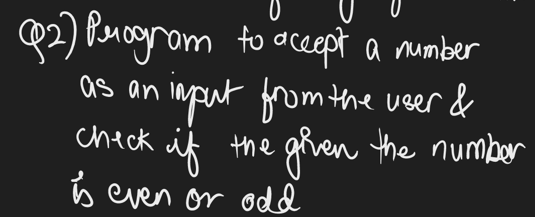 Q2) Program to accept a number
as an input from the user &
check if the given the number
is even or odd